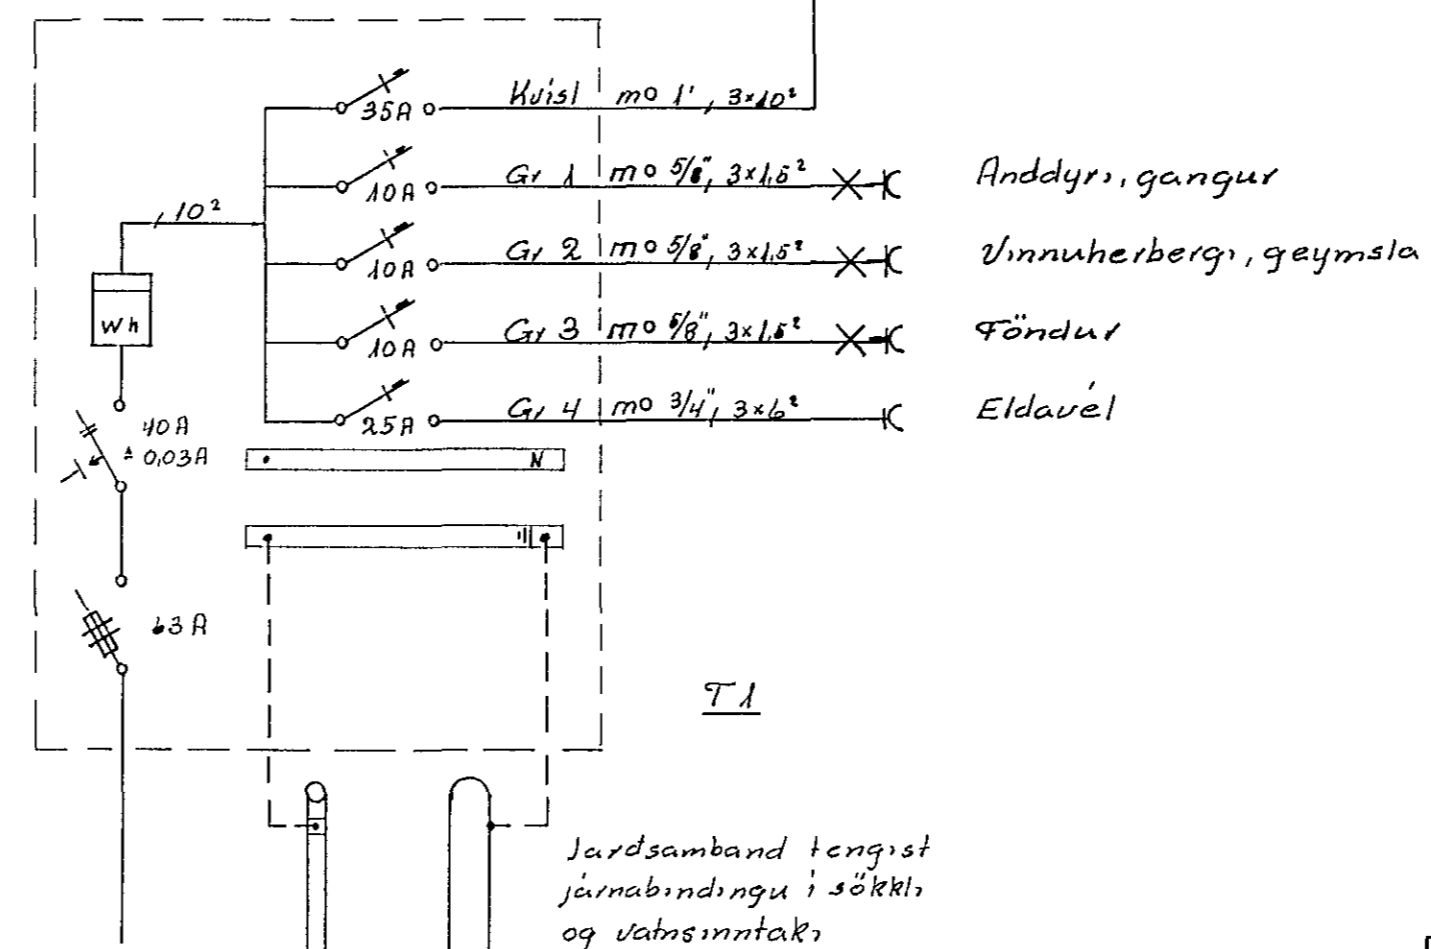 35A Kvísl mo 1", 3×10²
10A Gr 1 mo 5/8", 3×1,5² Anddyri, gangur
10² 10A Gr 2 mo 5/8", 3×1,5² Vinnuherbergi, geymsla
Wh 10A Gr 3 mo 5/8", 3×1,5² Föndur
25A Gr 4 mo 3/4", 3×6² Eldavél
40A
≙ 0,03A
N
63A
T1
Jardsamband tengist
járnabindingu i sökkli
og vatnsinntaki